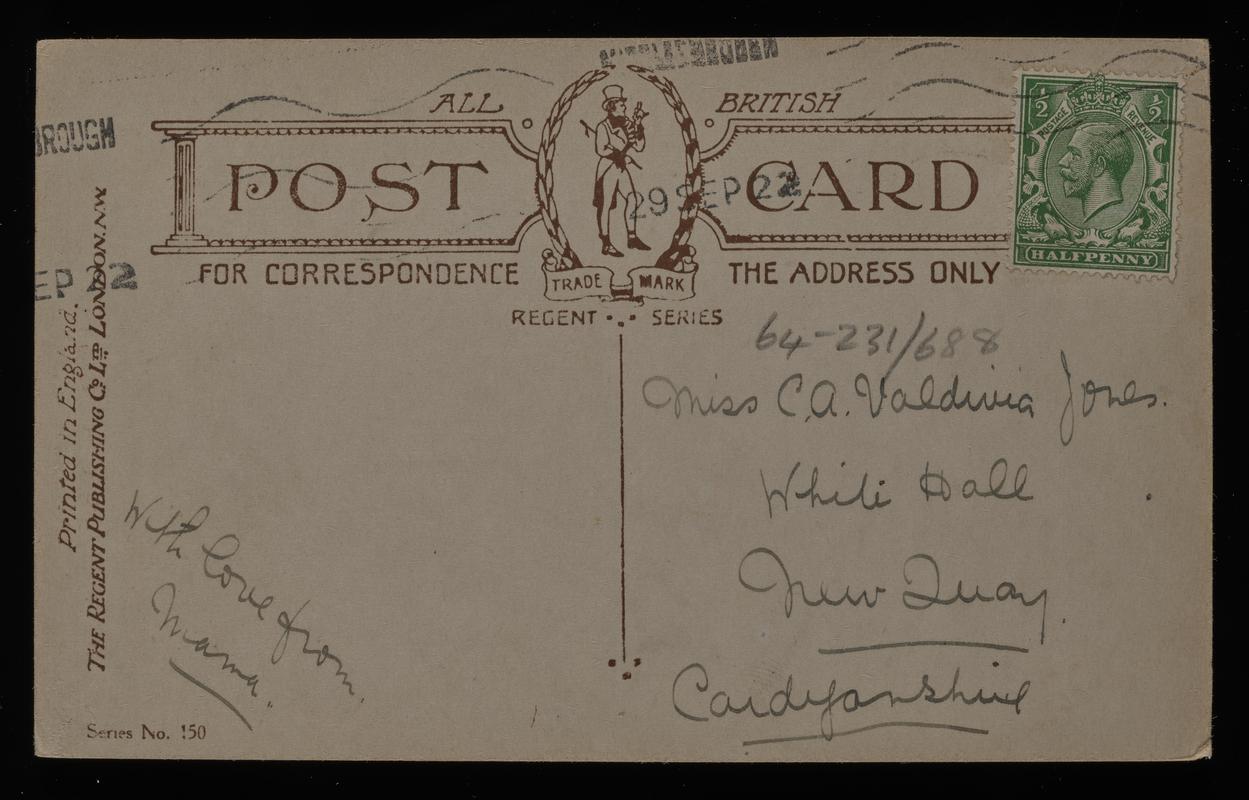 ALL BRITISH
POST CARD
29 SEP 22
BROUGH
EP 22
½ ½
POSTAGE REVENUE
HALFPENNY
FOR CORRESPONDENCE
TRADE MARK
THE ADDRESS ONLY
REGENT SERIES
64-231/688
Miss C.A. Valdivia Jones.
White Hall
New Quay.
Cardiganshire
With love from
Mama.
Printed in England.
THE REGENT PUBLISHING Co LTD LONDON. N.W.
Series No. 150